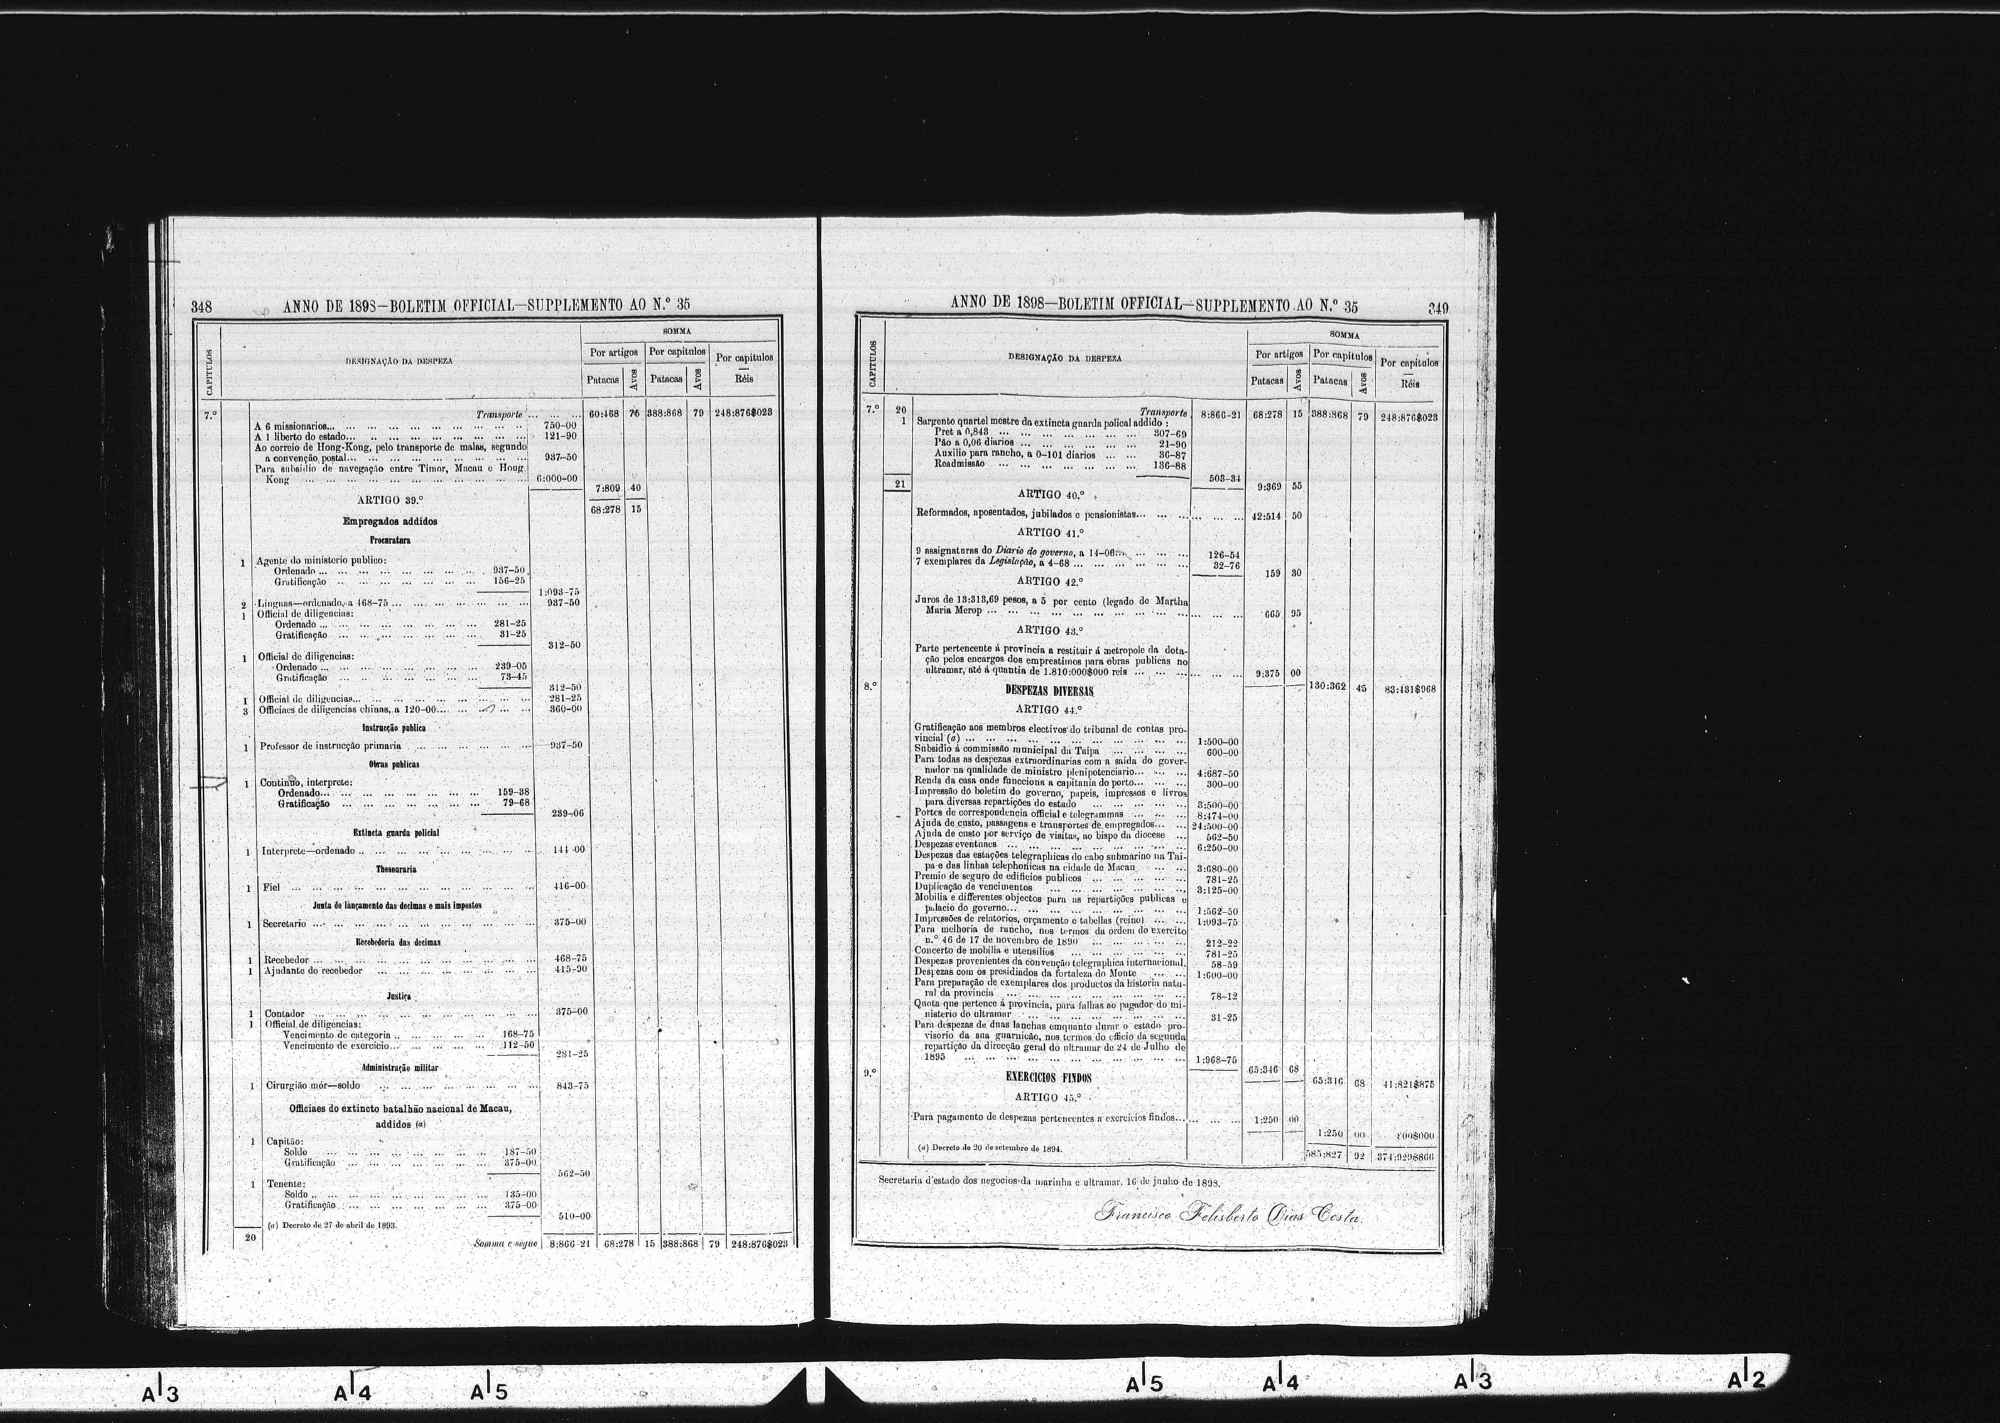 348 ANNO DE 1898—BOLETIM OFFICIAL—SUPPLEMENTO AO N.º 35
CAPITULOS
DESIGNAÇÃO DA DESPEZA
SOMMA
Por artigos Por capitulos Por capitulos
Patacas Avos Patacas Avos Réis
7.º Transporte ... ... ... 60:468 76 388:868 79 248:876$023
A 6 missionarios... ... ... 750-00
A 1 liberto do estado... ... ... 121-90
Ao correio de Hong-Kong, pelo transporte de malas, segundo
a convenção postal... ... ... 937-50
Para subsidio de navegação entre Timor, Macau e Hong
Kong ... ... ... 6:000-00
7:809 40
ARTIGO 39.º
68:278 15
Empregados addidos
Procuratura
1 Agente do ministerio publico:
Ordenado ... ... ... 937-50
Gratificação ... ... ... 156-25
1:093-75
2 Linguas—ordenado, a 468-75 ... ... ... 937-50
1 Official de diligencias:
Ordenado ... ... ... 281-25
Gratificação ... ... ... 31-25
312-50
1 Official de diligencias:
Ordenado ... ... ... 239-05
Gratificação ... ... ... 73-45
312-50
1 Official de diligencias... ... ... 281-25
3 Officiaes de diligencias chinas, a 120-00... ... ... 360-00
Instrucção publica
1 Professor de instrucção primaria ... ... ... 937-50
Obras publicas
1 Continuo, interprete:
Ordenado... ... ... 159-38
Gratificação ... ... ... 79-68
239-06
Extincta guarda policial
1 Interprete—ordenado ... ... ... 144-00
Thesouraria
1 Fiel ... ... ... 416-00
Junta de lançamento das decimas e mais impostos
1 Secretario ... ... ... 375-00
Recebedoria das decimas
1 Recebedor ... ... ... 468-75
1 Ajudante do recebedor ... ... ... 415-90
Justiça
1 Contador ... ... ... 375-00
1 Official de diligencias:
Vencimento de categoria ... ... ... 168-75
Vencimento de exercicio... ... ... 112-50
281-25
Administração militar
1 Cirurgião mór—soldo ... ... ... 843-75
Officiaes do extincto batalhão nacional de Macau,
addidos (a)
1 Capitão:
Soldo ... ... ... 187-50
Gratificação ... ... ... 375-00
562-50
1 Tenente:
Soldo ... ... ... 135-00
Gratificação ... ... ... 375-00
510-00
(a) Decreto de 27 de abril de 1893.
20 Somma e segue 8:866-21 68:278 15 388:868 79 248:876$023
ANNO DE 1898—BOLETIM OFFICIAL—SUPPLEMENTO AO N.º 35 349
CAPITULOS
DESIGNAÇÃO DA DESPEZA
SOMMA
Por artigos Por capitulos Por capitulos
Patacas Avos Patacas Avos Réis
7.º 20 Transporte 8:866-21 68:278 15 388:868 79 248:876$023
1 Sargento quartel mestre da extincta guarda polical addido:
Pret a 0,843 ... ... ... 307-69
Pão a 0,06 diarios ... ... ... 21-90
Auxilio para rancho, a 0-101 diarios ... ... 36-87
Readmissão ... ... ... 136-88
503-34
21 9:369 55
ARTIGO 40.º
Reformados, aposentados, jubilados e pensionistas... ... ... 42:514 50
ARTIGO 41.º
9 assignaturas do Diario do governo, a 14-06... ... ... 126-54
7 exemplares da Legislação, a 4-68 ... ... ... 32-76
159 30
ARTIGO 42.º
Juros de 13:313,69 pesos, a 5 por cento (legado de Martha
Maria Merop ... ... ... 665 95
ARTIGO 43.º
Parte pertencente á provincia a restituir á metropole da dota-
ção pelos encargos dos emprestimos para obras publicas no
ultramar, até á quantia de 1.810:000$000 reis ... ... ... 9:375 00
130:362 45 83:431$968
8.º DESPEZAS DIVERSAS
ARTIGO 44.º
Gratificação aos membros electivos do tribunal de contas pro-
vincial (a) ... ... ... 1:500-00
Subsidio á commissão municipal da Taipa ... ... ... 600-00
Para todas as despezas extraordinarias com a saida do gover-
nador na qualidade de ministro plenipotenciario... ... ... 4:687-50
Renda da casa onde funcciona a capitania do porto... ... ... 300-00
Impressão do boletim do governo, papeis, impressos e livros
para diversas repartições do estado ... ... ... 3:500-00
Portes de correspondencia official e telegrammas ... ... ... 8:474-00
Ajuda de custo, passagens e transportes de empregados... ... 24:500-00
Ajuda de custo por serviço de visitas, ao bispo da diocese ... 562-50
Despezas eventuaes ... ... ... 6:250-00
Despezas das estações telegraphicas do cabo submarino na Tai-
pa e das linhas telephonicas na cidade de Macau ... ... 3:680-00
Premio de seguro de edificios publicos ... ... ... 781-25
Duplicação de vencimentos ... ... ... 3:125-00
Mobilia e differentes objectos para as repartições publicas e
palacio do governo... ... ... 1:562-50
Impressões de relatorios, orçamento e tabellas (reino) ... ... 1:093-75
Para melhoria de rancho, nos termos da ordem do exercito
n.º 46 de 17 de novembro de 1890 ... ... ... 212-22
Concerto de mobilia e utensilios ... ... ... 781-25
Despezas provenientes da convenção telegraphica internacional. 58-59
Despezas com os presidiados da fortaleza do Monte ... ... 1:600-00
Para preparação de exemplares dos productos da historia natu-
ral da provincia ... ... ... 78-12
Quota que pertence á provincia, para falhas ao pagador do mi-
nisterio do ultramar ... ... ... 31-25
Para despezas de duas lanchas emquanto durar o estado pro-
visorio da sua guarnição, nos termos do officio da segunda
repartição da direcção geral do ultramar de 24 de Julho de
1895 ... ... ... 1:968-75
65:346 68
9.º EXERCICIOS FINDOS 65:346 68 41:821$875
ARTIGO 45.º
Para pagamento de despezas pertencentes a exercicios findos... ... ... 1:250 00
1:250 00 800$000
(a) Decreto de 20 de setembro de 1894.
585:827 92 374:929$866
Secretaria d'estado dos negocios da marinha e ultramar, 16 de junho de 1898.
Francisco Felisberto Dias Costa.
A 3 A 4 A 5 A 5 A 4 A 3 A 2